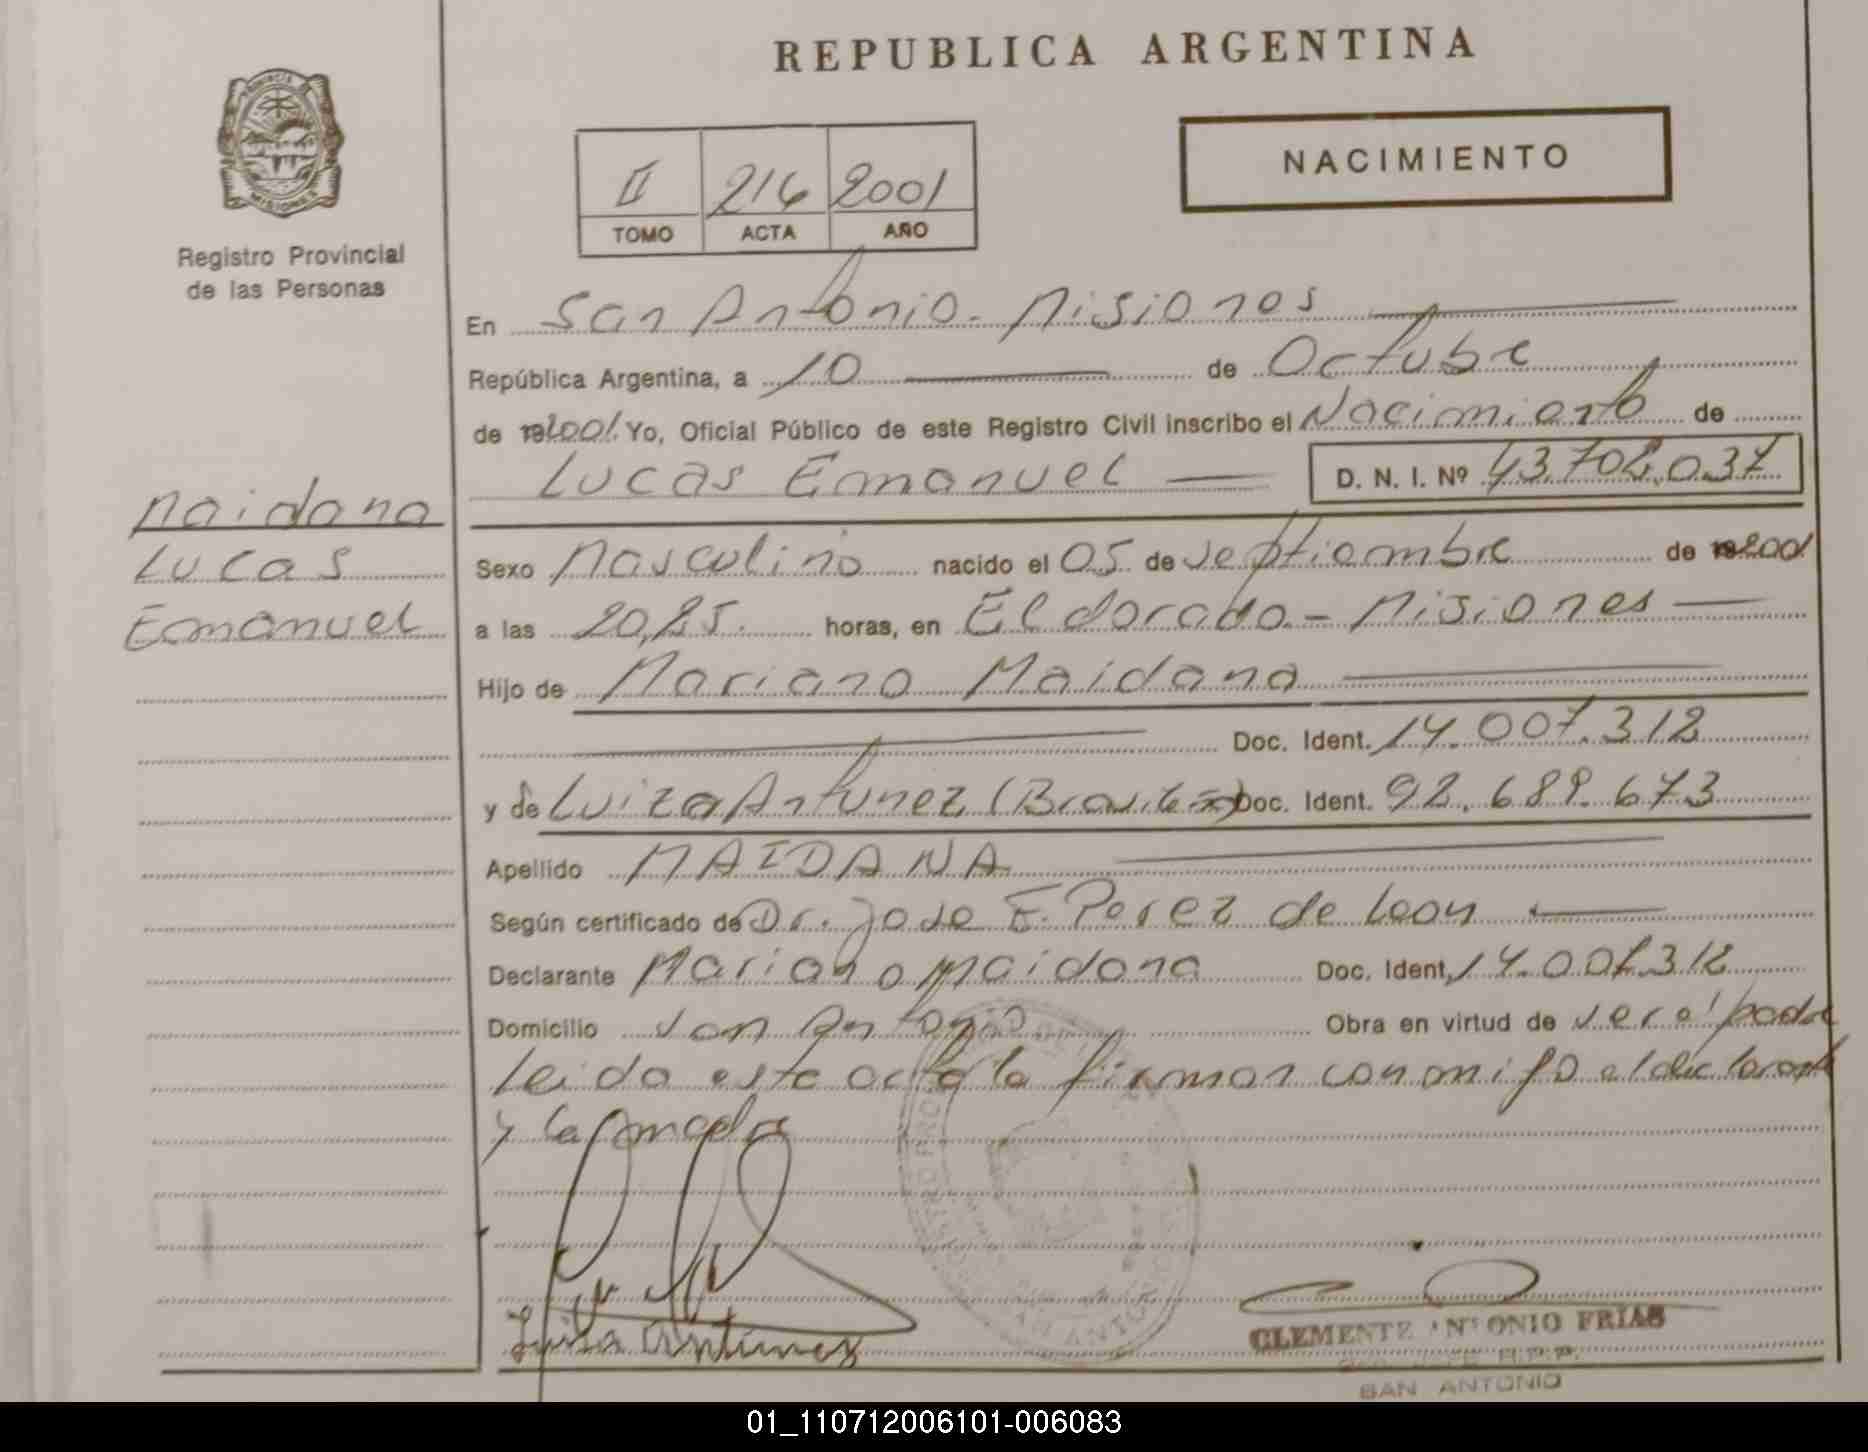 REPUBLICA ARGENTINA
NACIMIENTO
II 216 2001
TOMO ACTA AÑO
Provincia
MISIONES
Registro Provincial
de las Personas
En San Antonio - Misiones
República Argentina, a 10 de Octubre
de 2001. Yo, Oficial Público de este Registro Civil inscribo el Nacimiento de
Lucas Emanuel D. N. I. Nº 43.702.037
Maidana
Lucas
Emanuel
Sexo Masculino nacido el 05 de septiembre de 2001
a las 20,25. horas, en Eldorado - Misiones
Hijo de Mariano Maidana
Doc. Ident. 14.007.312
y de Luiza Antunez (Brasileña) Doc. Ident. 92.689.673
Apellido MAIDANA
Según certificado de Dr. Jose E. Perez de Leon
Declarante Mariano Maidana Doc. Ident. 14.007.312
Domicilio San Antonio Obra en virtud de ser el padre
Leida este acta la firman conmigo el declarante
y la madre
Luiza Antunez
CLEMENTE ANTONIO FRIAS
R.P.P.
SAN ANTONIO
01_110712006101-006083